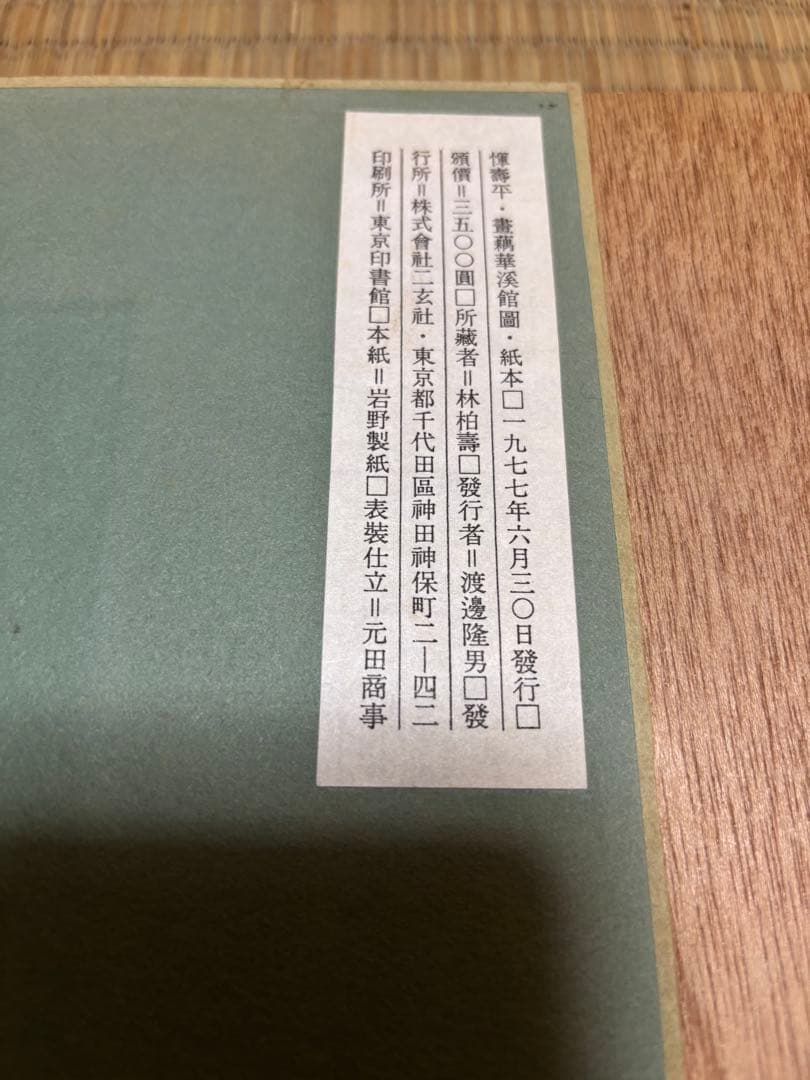 惲壽平・畫藕華溪館圖・紙本□一九七七年六月三〇日發行□
頒價＝三五〇〇圓□所藏者＝林柏壽□發行者＝渡邊隆男□發
行所＝株式會社二玄社・東京都千代田區神田神保町二ー四二
印刷所＝東京印書館□本紙＝岩野製紙□表裝仕立＝元田商事